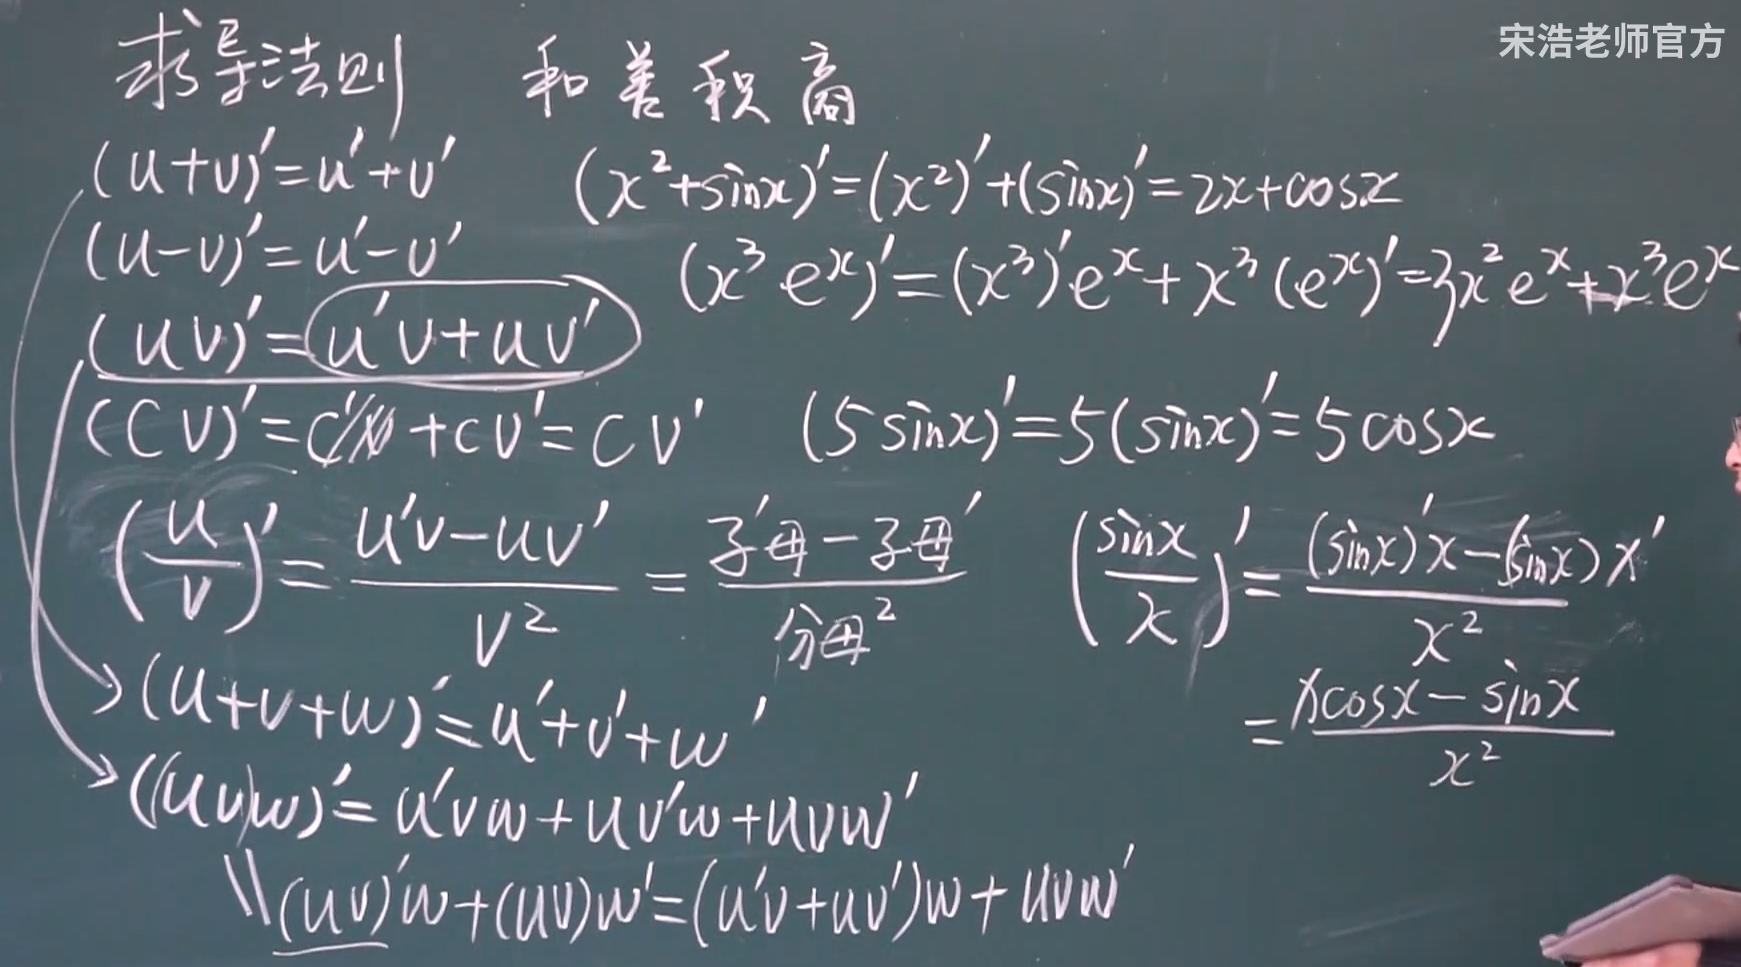 宋浩老师官方
求导法则 和差积商
(u+v)'=u'+v' (x²+sinx)'=(x²)'+(sinx)'=2x+cosx
(u-v)'=u'-v' (x³eˣ)'=(x³)'eˣ+x³(eˣ)'=3x²eˣ+x³eˣ
(uv)'=u'v+uv'
(Cv)'=C'v+Cv'=Cv' (5sinx)'=5(sinx)'=5cosx
(u/v)'=(u'v-uv')/v²=(子'母-子母')/分母² (sinx/x)'=((sinx)'x-(sinx)x')/x²
=(xcosx-sinx)/x²
(u+v+w)'=u'+v'+w'
((uv)w)'=u'vw+uv'w+uvw'
\\(uv)'w+(uv)w'=(u'v+uv')w+uvw'